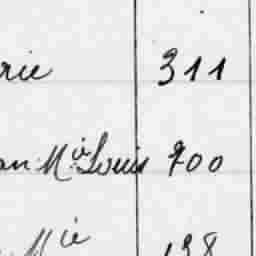 rie 311
an Mie Louis 700
Mie 138